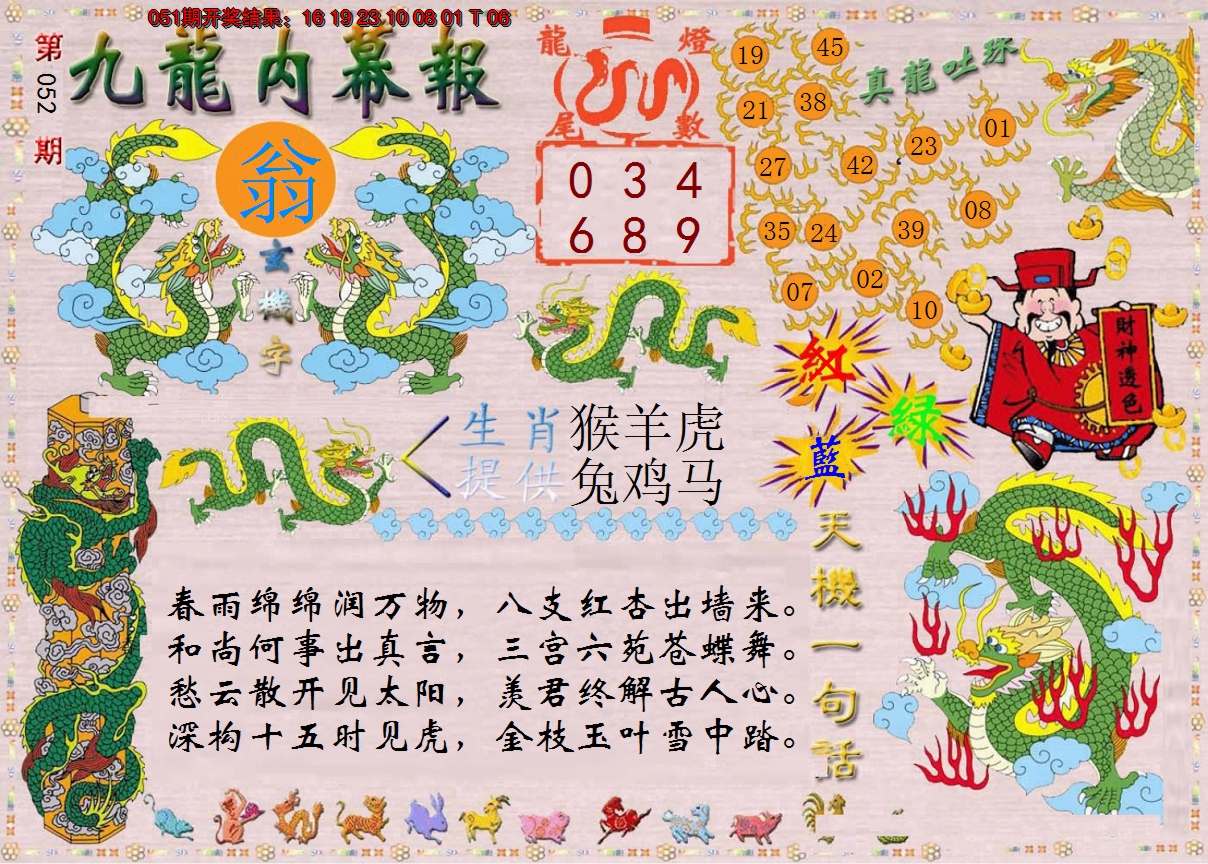 051期开奖结果：16 19 23 10 08 01 T 06
第052期
九龍内幕報
翁
玄機字
龍燈
尾數
0 3 4
6 8 9
真龍吐珠
19 45
21 38
23 01
27 42
08
35 24 39
02
07
10
財神透色
紅
綠
藍
生肖 猴羊虎
提供 兔鸡马
春雨绵绵润万物，八支红杏出墙来。
和尚何事出真言，三宫六苑苍蝶舞。
愁云散开见太阳，羡君终解古人心。
深构十五时见虎，金枝玉叶雪中踏。
天機一句話